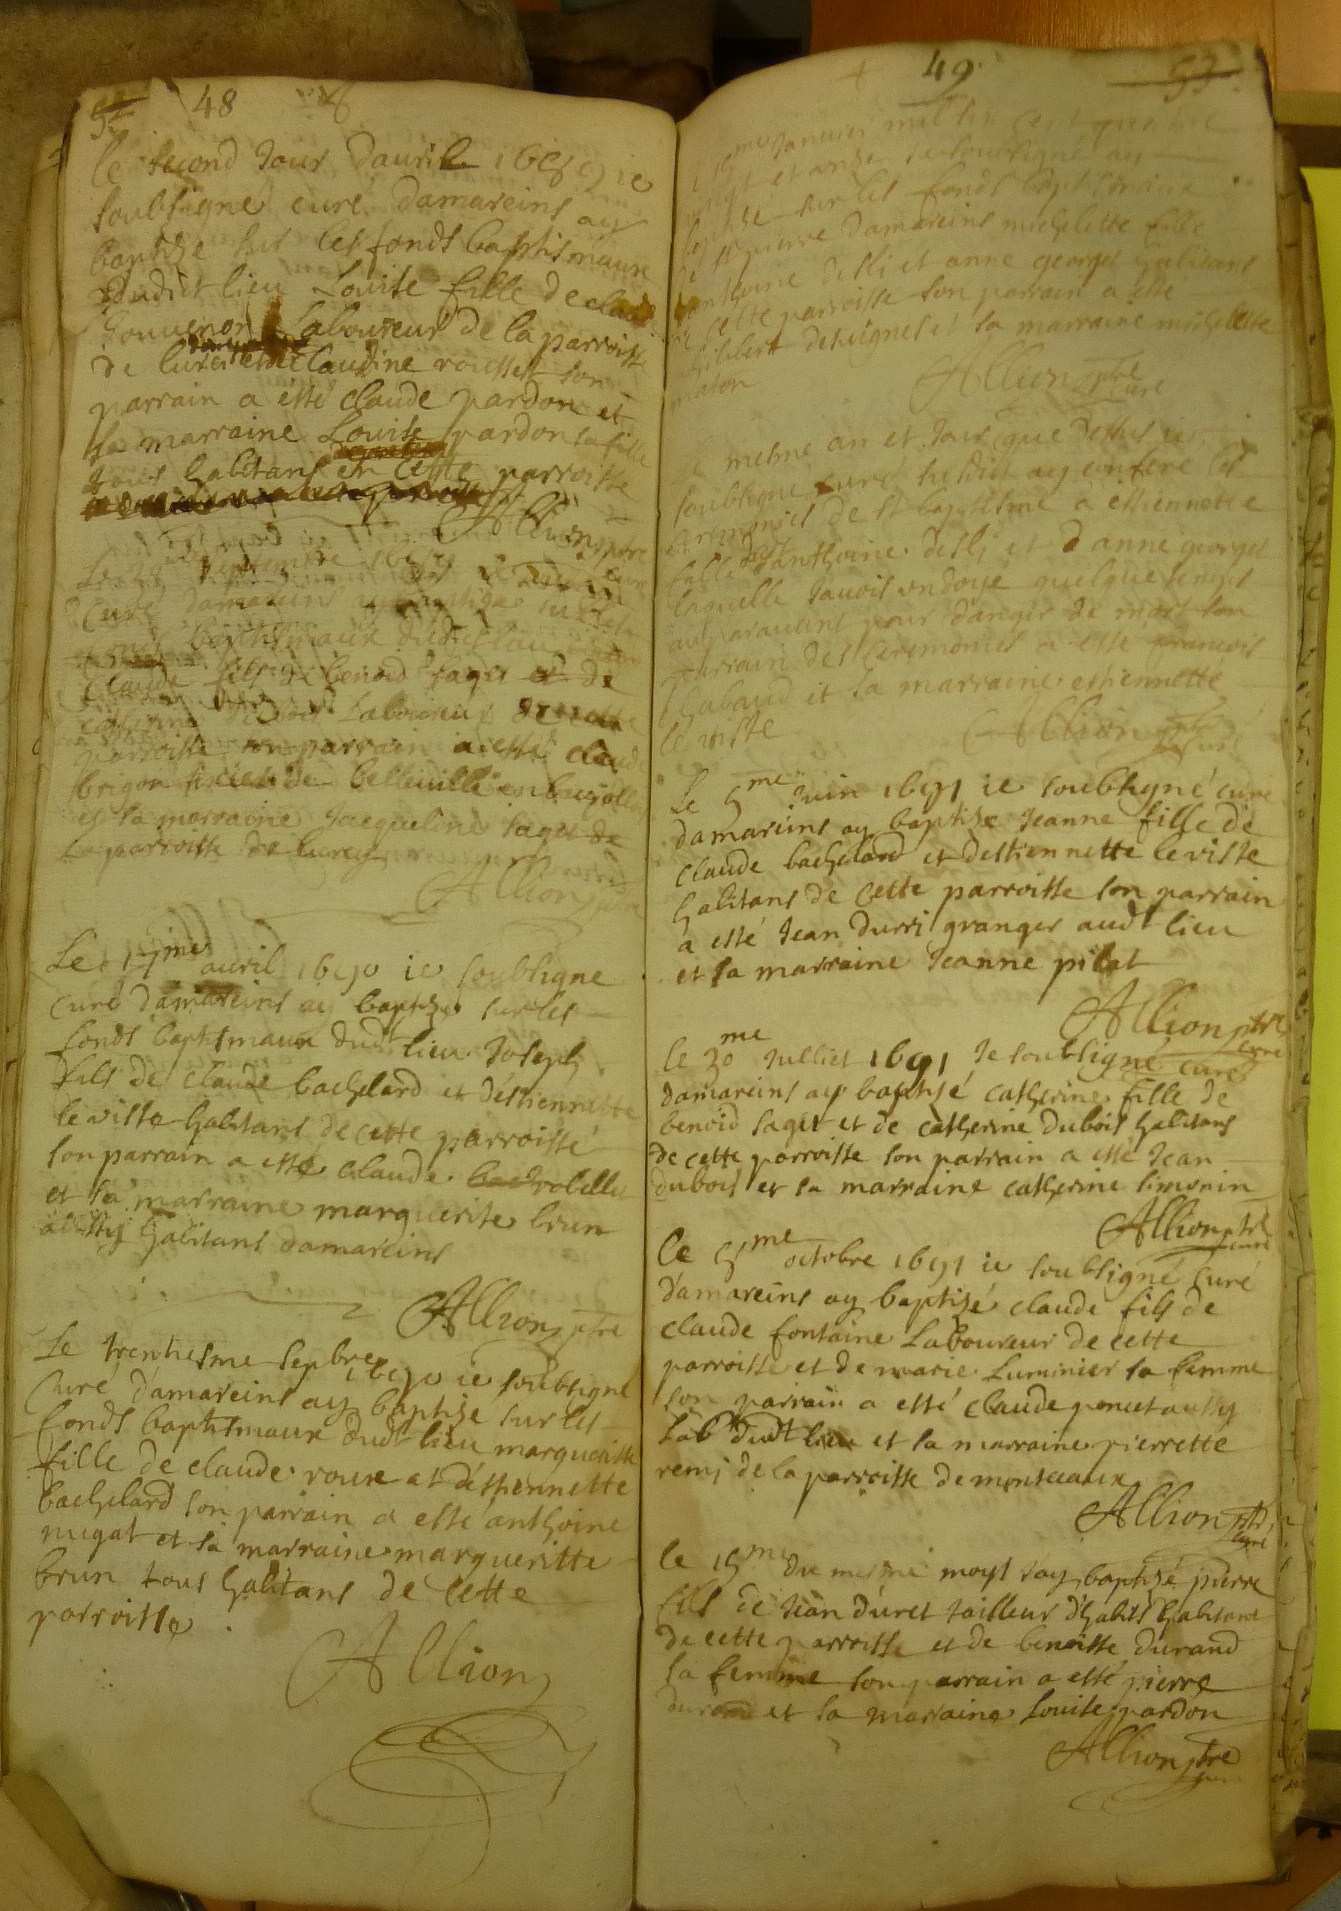 48
le second Jour Dauril 1689 ie
soubsigne curé Damareins ay
baptize sur les fonds baptismaux
dudict lieu Louise fille de claude
Laboureur de la parroisse
de lurci et de Claudine rousset son
parrain a esté Claude pardon et
sa marraine Louise pardon sa fille
tous habitans en cette parroisse
Allion ptre
curé
septembre 1689
curé damareins ay baptize sur les
baptismaux dudict lieu
claude fils de benoid sages et de
catherine Laboureur de cette
parroisse son parrain a esté claude
brigon de belleuille en beaujollois
et sa marraine Jacqueline sages de
la parroisse de lurcy
Allion ptre
Le 17me auril 1690 ie soubsigne
curé damareins ay baptize sur les
fonds baptismaux dudt lieu Joseph
fils de claude bachelard et d'estiennette
leviste habitans de cette parroisse
son parrain a esté claude
et sa marraine marguerite brun
aussy habitans damareins
Allion ptre
Le trentiesme sepbre 1690 ie soubsigne
Curé d'amareins ay baptizé sur les
fonds baptismaux dudt lieu margueritte
fille de claude roux et d'estiennette
bachelard son parrain a esté anthoine
migat et sa marraine margueritte
brun tous habitans de cette
parroisse
Allion
49
53
Januier mil six cent quatre
vingt et onze ie soubsigné ay
baptizé sur les fonds baptismaux
de st pierre Damareins michelette fille
anthoine desli et anne georges habitans
de cette parroisse son parrain a esté
philibert desuignes et sa marraine michelette
maton
Allion ptre
curé
mesme an et Jour que dessus ie
soubsigne curé susdict ay conferé les
ceremonies de st baptesme a estiennette
fille d'anthoine desli et d anne georges
laquelle Jauois ondoyé quelque temps
auparauant pour danger de mort son
parrain des ceremonies a esté françois
chabaud et sa marraine estiennette
le viste
Allion ptre
curé
Le 5me Juin 1691 ie soubsigné curé
damareins ay baptize Jeanne fille de
claude bachelard et destiennette leviste
habitans de cette parroisse son parrain
a esté Jean durri granger audt lieu
et sa marraine Jeanne pilat
Allion ptre
curé
le 30me Julliet 1691 Je soubsigné curé
damareins ay baptisé catherine fille de
benoid sages et de catherine dubois habitans
de cette parroisse son parrain a esté Jean
dubois et sa marraine catherine simonin
Allion ptre
curé
Le 5me octobre 1691 ie soubsigné curé
d'amareins ay baptizé claude fils de
claude fontaine Laboureur de cette
parroisse et de marie Luminier sa femme
son parrain a esté claude poncet aussy
Labr dudt lieu et sa marraine pierrette
remi de la parroisse de montceaux
Allion ptre
curé
le 15me du mesme moys Jay baptizé pierre
fils de Jean duret tailleur d'habits habitant
de cette parroisse et de benoiste durand
sa femme son parrain a esté pierre
durand et sa marraine Louise pardon
Allion ptre
curé